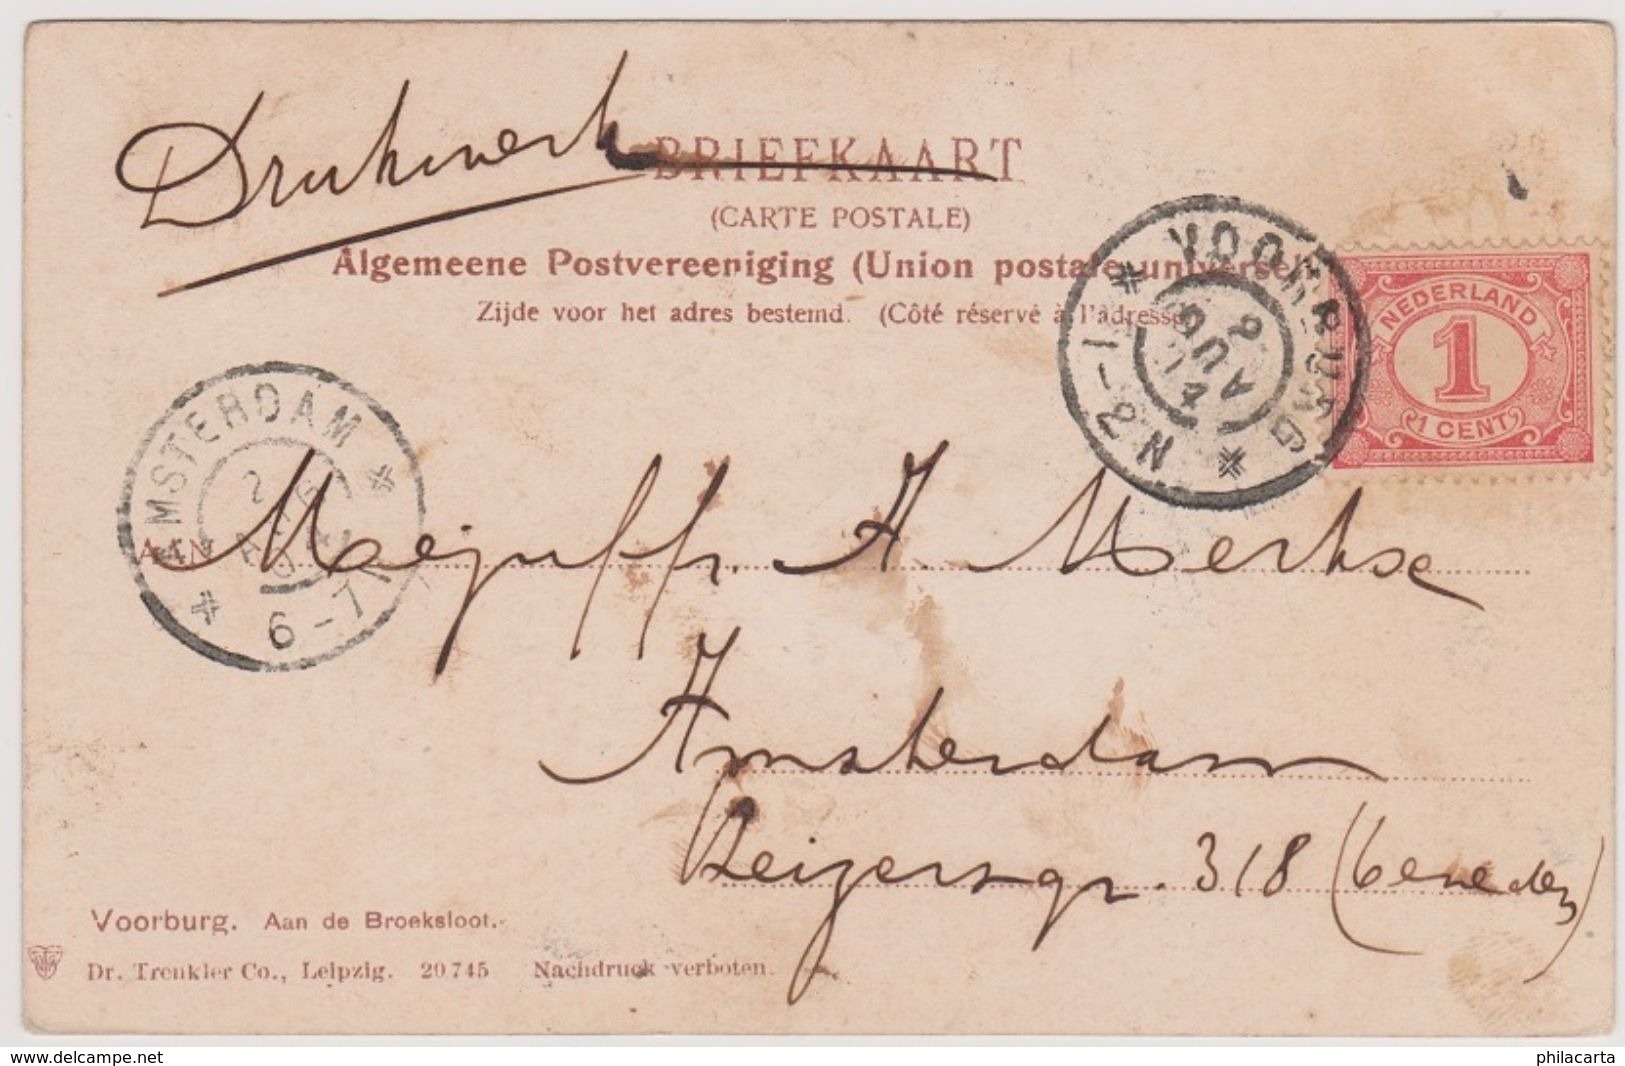 Drukwerk
BRIEFKAART
(CARTE POSTALE)
Algemeene Postvereeniging (Union postale universel
Zijde voor het adres bestemd. (Côté réservé à l'adresse
VOORBURG
2 AUG 04
N 2-1
NEDERLAND
1
1 CENT
AMSTERDAM
2 AUG 04
6-7
AAN Mejuffr. A. Merkse
Amsterdam
Keizersgr. 318 (beneden)
Voorburg. Aan de Broeksloot.
Dr. Trenkler Co., Leipzig. 20 745 Nachdruck verboten.
www.delcampe.net
philacarta